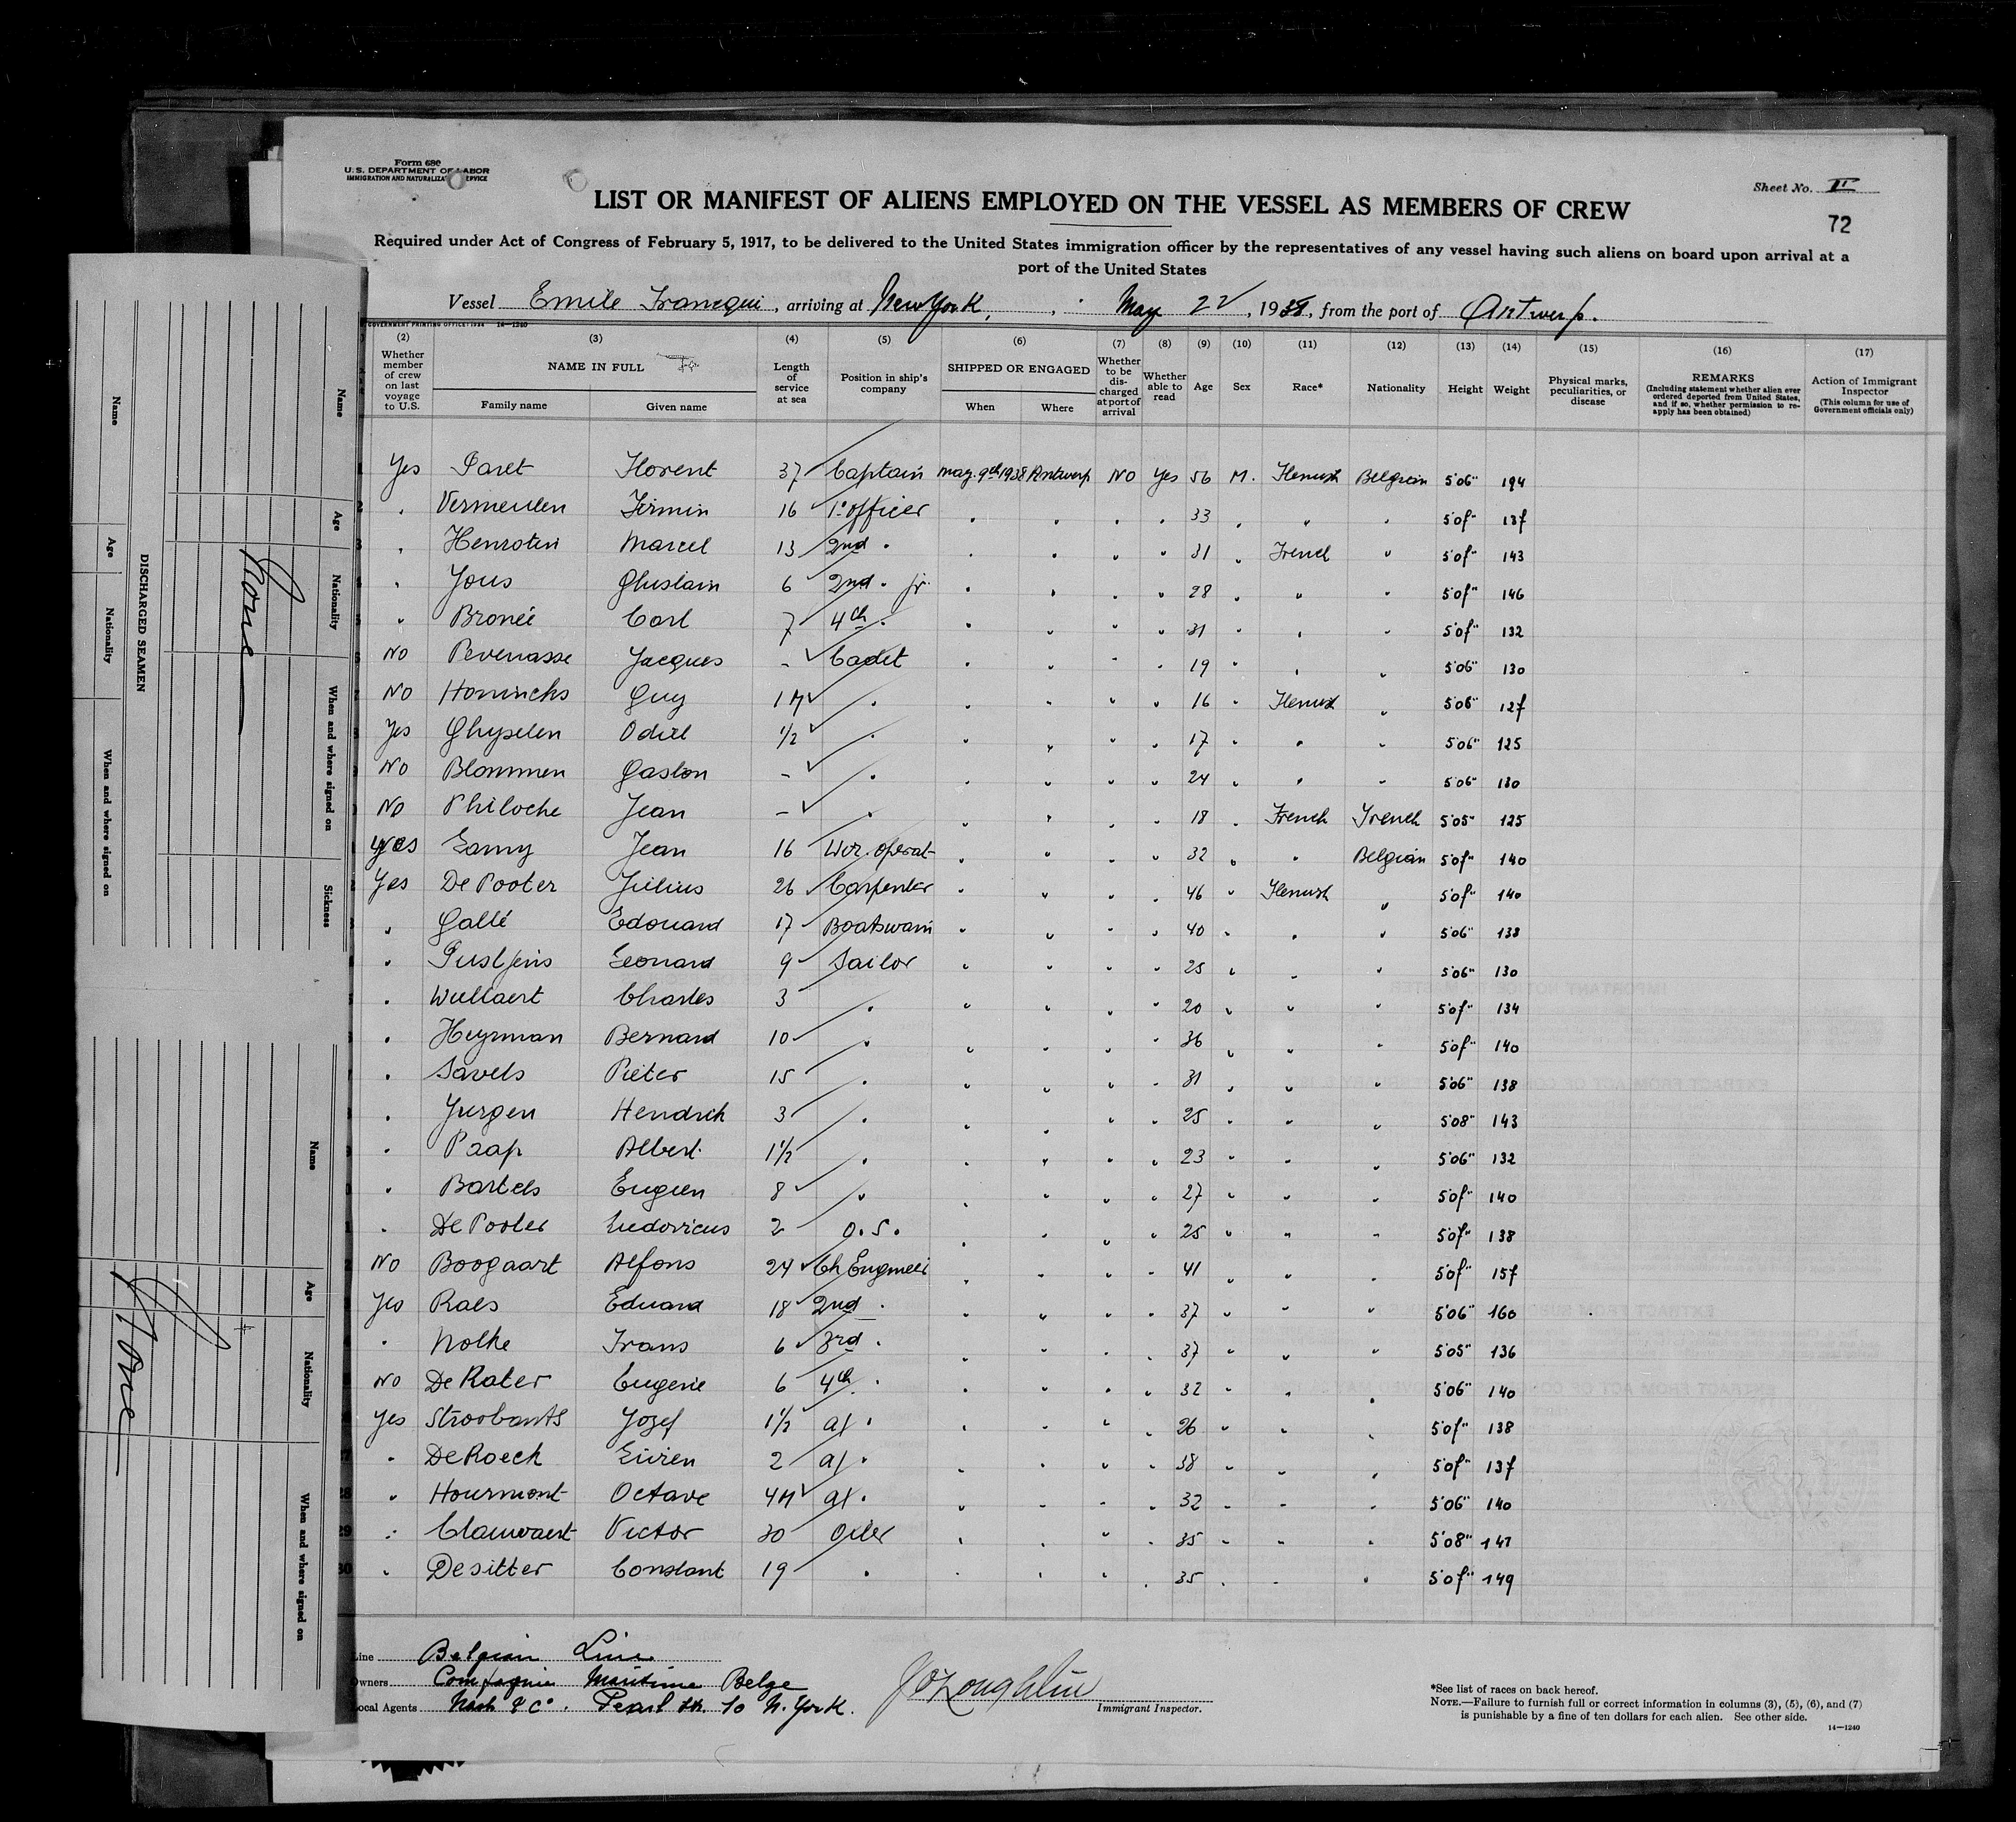 Form 680
U.S. DEPARTMENT OF LABOR
IMMIGRATION AND NATURALIZATION SERVICE
Sheet No. II
72
LIST OR MANIFEST OF ALIENS EMPLOYED ON THE VESSEL AS MEMBERS OF CREW
Required under Act of Congress of February 5, 1917, to be delivered to the United States immigration officer by the representatives of any vessel having such aliens on board upon arrival at a
port of the United States
Vessel Emile Francqui, arriving at New York, May 22, 1938, from the port of Antwerp.
GOVERNMENT PRINTING OFFICE: 1934 14—1240
(2) (3) (4) (5) (6) (7) (8) (9) (10) (11) (12) (13) (14) (15) (16) (17)
Whether member of crew on last voyage to U.S.
NAME IN FULL
Family name Given name
Length of service at sea
Position in ship's company
SHIPPED OR ENGAGED
When Where
Whether to be discharged at port of arrival
Whether able to read
Age Sex Race* Nationality Height Weight
Physical marks, peculiarities, or disease
REMARKS
(Including statement whether alien ever ordered deported from United States, and if so, whether permission to reapply has been obtained)
Action of Immigrant Inspector
(This column for use of Government officials only)
Yes Paret Florent 37 Captain May. 9th 1938 Antwerp NO Yes 56 M. Flemish Belgian 5'06" 194
" Vermeulen Firmin 16 1° officer " " " " 33 " " " 5'0f" 13f
" Henrotin Marcel 13 2nd " " " " " 31 " French " 5'0f" 143
" Jous Ghislain 6 2nd " jr. " " " " 28 " " " 5'0f" 146
" Bronéé Carl 7 4th " " " " " 31 " " " 5'0f" 132
NO Pevenasse Jacques - Cadet " " " " 19 " " " 5'06" 130
NO Honinckx Guy 1M " " " " " 16 " Flemish " 5'06" 12f
Yes Ghyselen Odiel 1/2 " " " " " 17 " " " 5'06" 125
NO Blommen Gaston - " " " " " 24 " " " 5'06" 130
NO Philoche Jean - " " " " " 18 " French French 5'05" 125
yes Lamy Jean 16 Wir. operat- " " " " 32 " " Belgian 5'0f" 140
Yes De Pooter Julius 26 Carpenter " " " " 46 " Flemish " 5'0f" 140
" Gallé Edouard 17 Boatswain " " " " 40 " " " 5'06" 138
" Pustjens Leonard 9 Sailor " " " " 25 " " " 5'06" 130
" Wullaert Charles 3 " " " " " 20 " " " 5'0f" 134
" Heyrman Bernard 10 " " " " " 36 " " " 5'0f" 140
" Savels Pieter 15 " " " " " 31 " " " 5'06" 138
" Jurgen Hendrik 3 " " " " " 25 " " " 5'08" 143
" Paap Albert 1 1/2 " " " " " 23 " " " 5'06" 132
" Bartels Eugien 8 " " " " " 27 " " " 5'0f" 140
" De Pooter Ludovicus 2 O.S. " " " " 25 " " " 5'0f" 138
NO Boogaart Alfons 24 Ch Engineer " " " " 41 " " " 5'0f" 15f
Yes Raes Eduard 18 2nd " " " " " 37 " " " 5'06" 160
" Nolke Frans 6 3rd " " " " " 37 " " " 5'05" 136
NO De Rater Eugene 6 4th " " " " " 32 " " " 5'06" 140
Yes Stroobants Jozef 1 1/2 a/ " " " " " 26 " " " 5'0f" 138
" De Roeck Livien 2 a/ " " " " " 38 " " " 5'0f" 13f
28 " Hourmont Octave 4M a/ " " " " " 32 " " " 5'06" 140
29 " Clauwaert Victor 30 Oiler " " " " 35 " " " 5'08" 147
30 " Desitter Constant 19 " " " " " 35 " " " 5'0f" 149
Line Belgian Line
Owners Compagnie Maritime Belge
Local Agents Nash & C°. Pearl str. 10 N. York.
JO'Loughlin
Immigrant Inspector.
*See list of races on back hereof.
NOTE.—Failure to furnish full or correct information in columns (3), (5), (6), and (7)
is punishable by a fine of ten dollars for each alien. See other side.
14—1240
DISCHARGED SEAMEN
Name Age Nationality When and where signed on
Name Age Nationality When and where signed on Sickness
None
Name Age Nationality When and where signed on
None